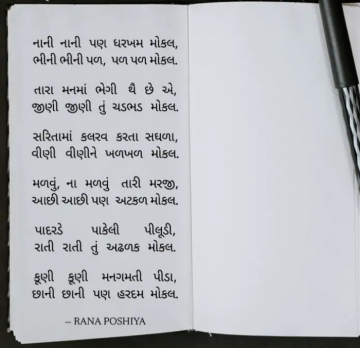 નાની નાની પણ ધરખમ મોકલ,
ભીની ભીની પળ, પળ પળ મોકલ.
તારા મનમાં ભેગી થૈ છે એ,
જીણી જીણી તું ચડભડ મોકલ.
સરિતામાં કલરવ કરતા સઘળા,
વીણી વીણીને ખળખળ મોકલ.
મળવું, ના મળવું તારી મરજી,
આછી આછી પણ અટકળ મોકલ.
પાદરડે પાકેલી પીલૂડી,
રાતી રાતી તું અઢળક મોકલ.
કૂણી કૂણી મનગમતી પીડા,
છાની છાની પણ હરદમ મોકલ.
– RANA POSHIYA